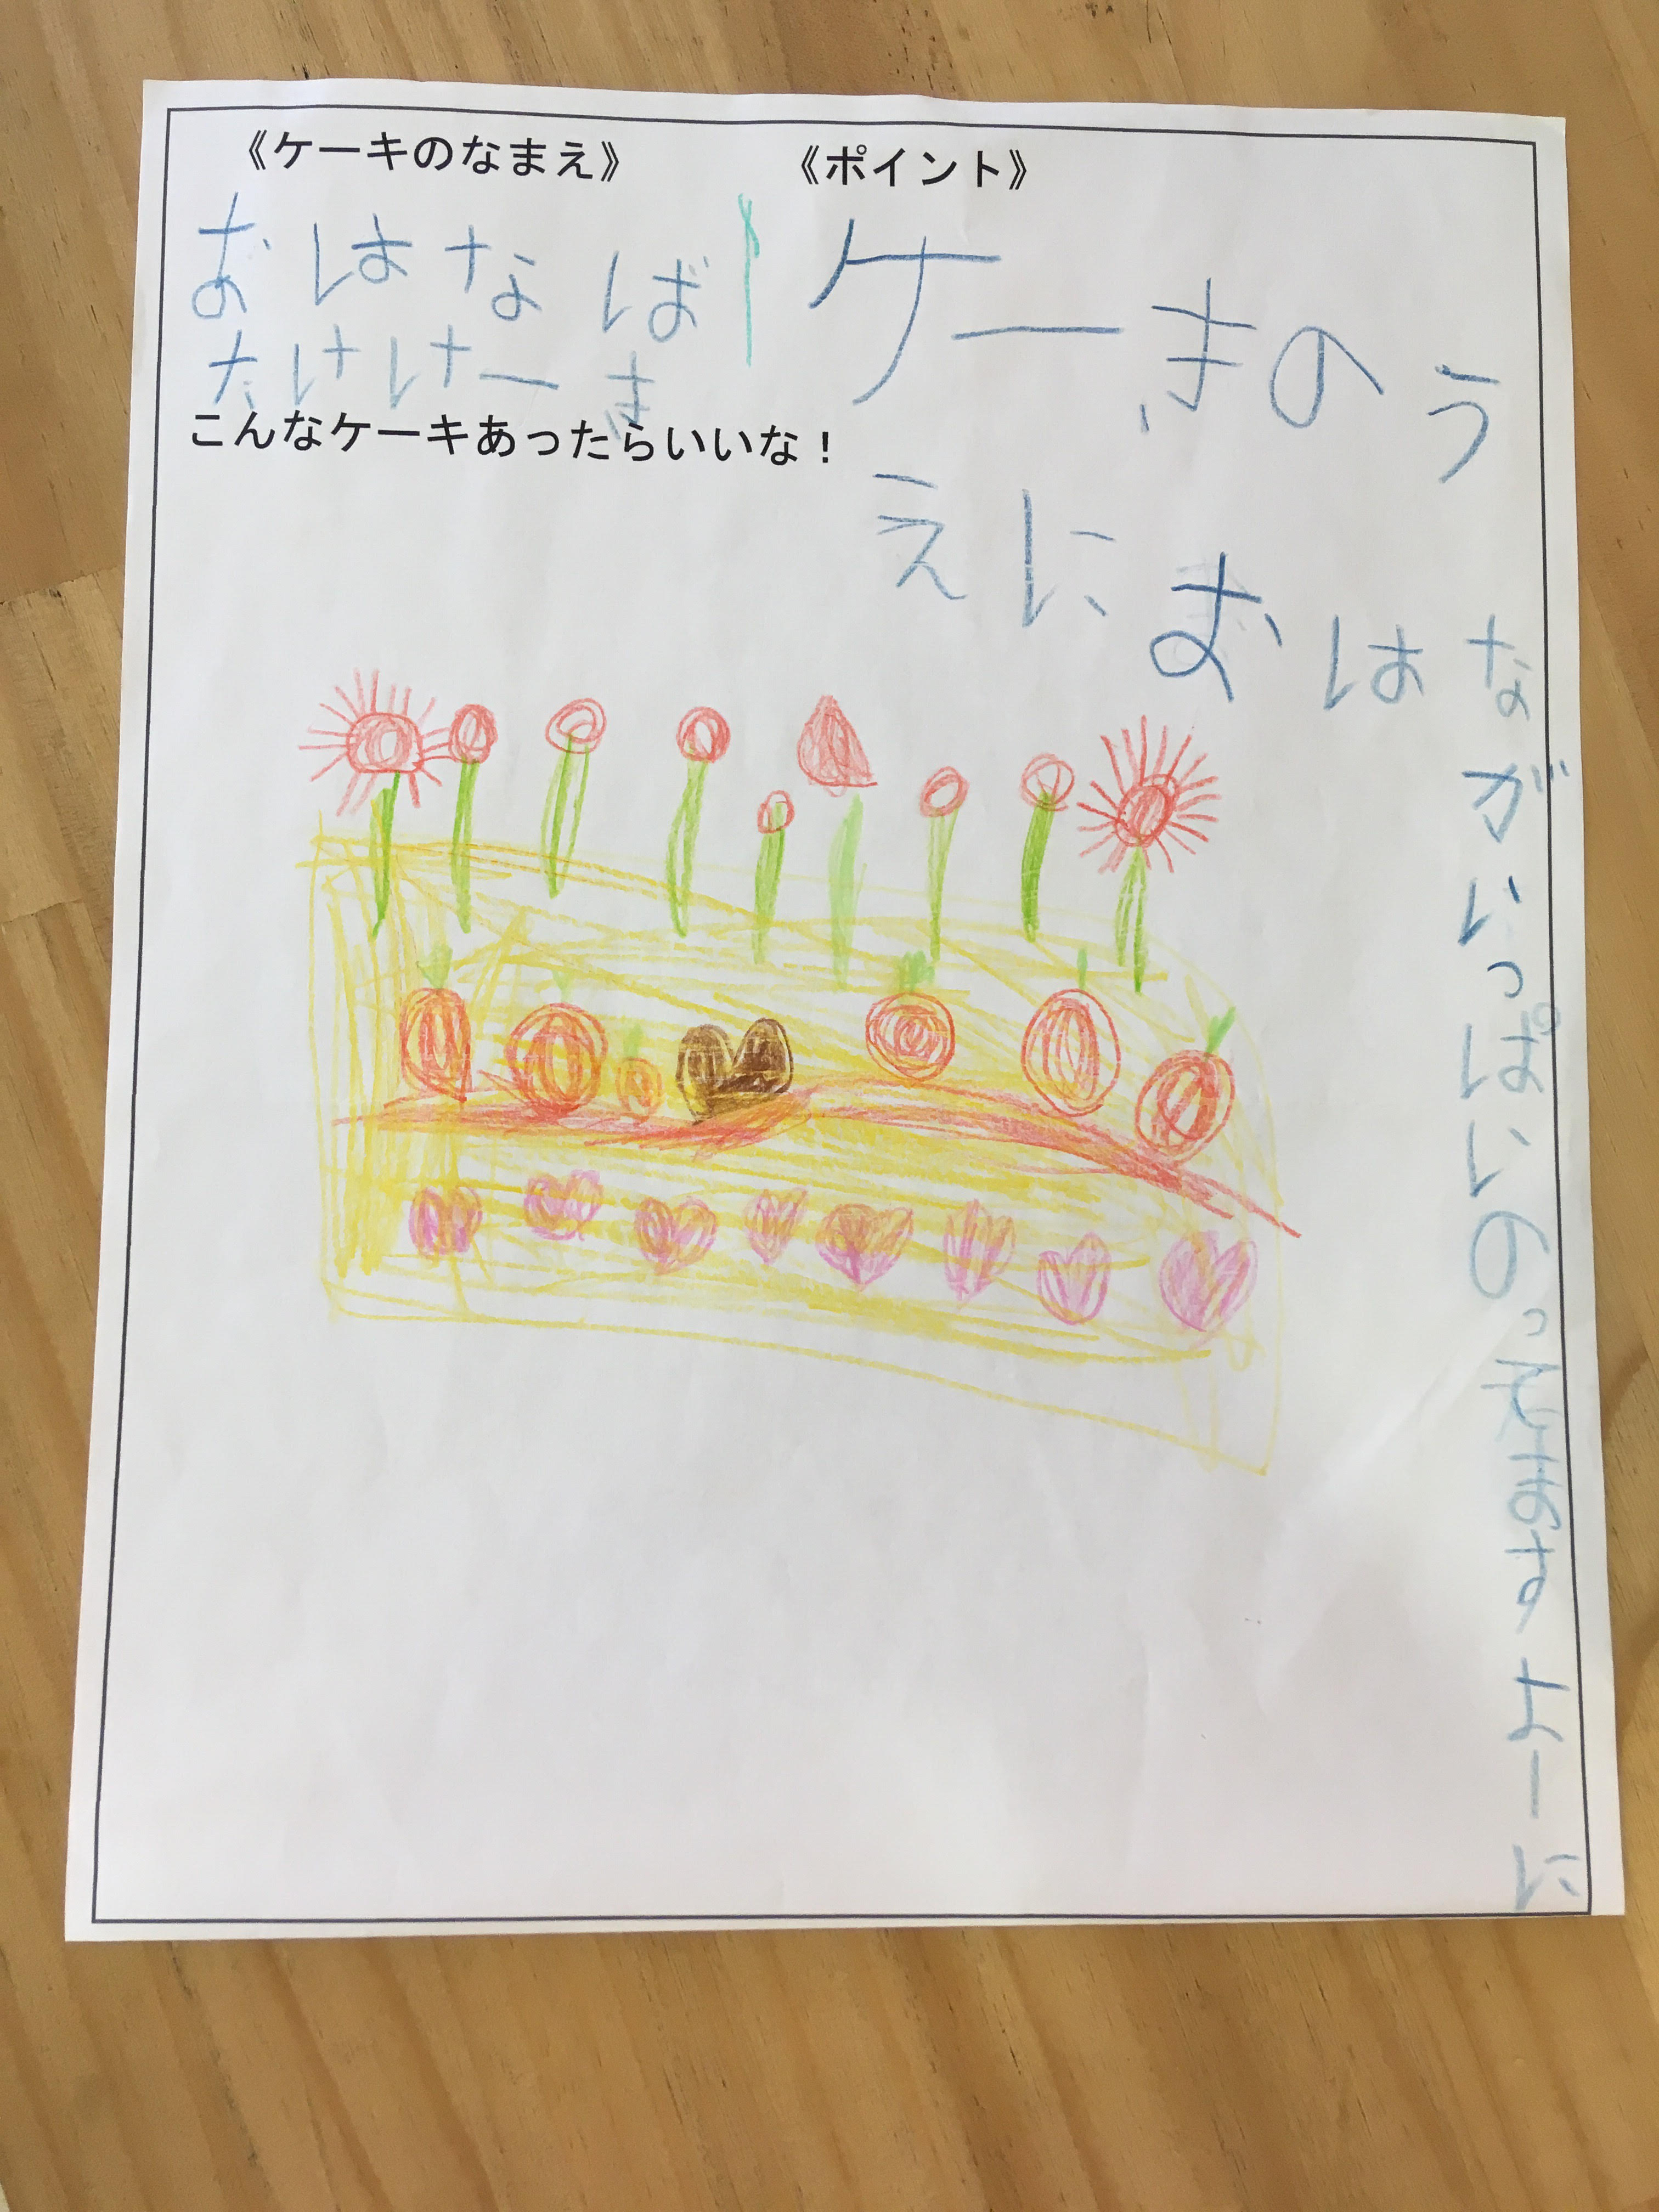 《ケーキのなまえ》
おはなば
たけけーき
《ポイント》
ケーきのう
えにおはな
がいっぱいのってますよーに
こんなケーキあったらいいな！